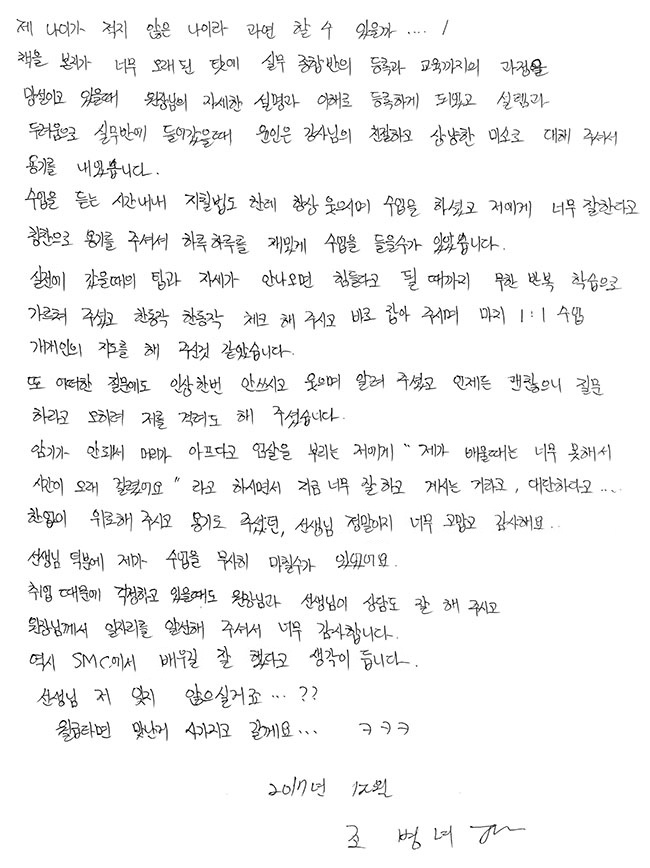 제 나이가 적지 않은 나이라 과연 할 수 있을까 .... /
책을 본지가 너무 오래된 탓에 실무 종합반의 등록과 교육까지의 과정을
망설이고 있을때 원장님의 자세한 설명과 이해로 등록하게 되었고 설렘과
두려움으로 실무반에 들어갔을때 윤인은 강사님의 친절하고 상냥한 미소로 대해 주셔서
용기를 내었습니다.
수업을 듣는 시간내내 지칠법도 한데 항상 웃으시며 수업을 하셨고 저에게 너무 잘한다고
칭찬으로 용기를 주셔서 하루하루를 재밌게 수업을 들을수가 있었습니다.
실전에 갔을때의 팁과 자세가 안나오면 힘들다고 될 때까지 무한 반복 학습으로
가르쳐 주셨고 한동작 한동작 체크 해 주시고 바로 잡아 주시며 마치 1:1 수업
개개인의 지도를 해 주신것 같았습니다.
또 어떠한 질문에도 인상한번 안쓰시고 웃으며 알려 주셨고 언제든 괜찮으니 질문
하라고 오히려 저를 격려도 해 주셨습니다.
암기가 안되서 머리가 아프다고 엄살을 부리는 저에게 " 제가 배울때는 너무 못해서
시간이 오래 걸렸어요 " 라고 하시면서 지금 너무 잘 하고 계시는 거라고, 대단하다고 ....
한없이 위로해 주시고 용기도 주셨던, 선생님 정말이지 너무 고맙고 감사해요..
선생님 덕분에 제가 수업을 무사히 마칠수가 있었어요.
취업 때문에 걱정하고 있을때도 원장님과 선생님이 상담도 잘 해 주시고
원장님께서 일자리를 알선해 주셔서 너무 감사합니다.
역시 SMC에서 배우길 잘 했다고 생각이 듭니다.
선생님 저 잊지 않으실거죠 ... ??
월급타면 맛난거 사가지고 갈게요 ... ㅋㅋㅋ
2017년 12월
조 병 녀